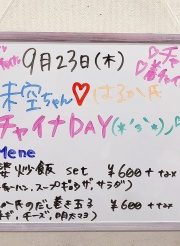 9月23日(木)
未空ちゃん♡はるか氏
チャイナDAY(*'s'*)
Mene
炒飯 set ¥600+tax
チャーハン、スープ、ギョウザ、サラダ)
か氏のだし巻き玉子 ¥600+tax
ネギ、チーズ、明太マヨ)